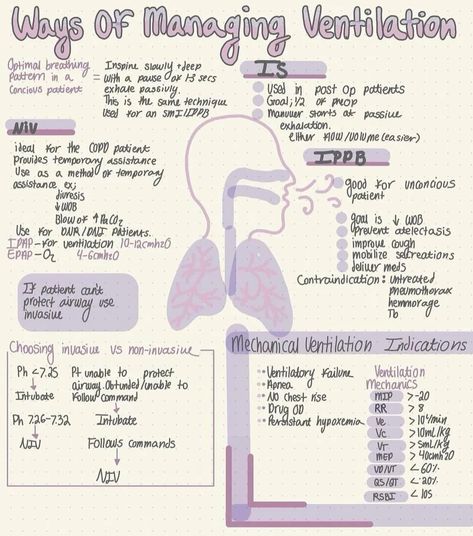 Ways Of Managing Ventilation
Optimal breathing
Pattern in a
Concious patient
= Inspire slowly + deep
with a pause of 1-3 secs
exhale passivly.
This is the same technique
used for an SMI/IPPB
IS
Used in post op patients
Goal; 1/2 of preop
Manuver starts at passive
exhalation.
either flow/volume (easier)
NIV
ideal for the COPD patient
Provides temporary assistance
Use as a method of temporary
assistance ex;
diuresis
↓ WOB
Blow off ↑ PaCO2
Use for DNR/DNI patients.
IPAP-for ventilation 10-12cmh20
EPAP-O2 4-6cmh20
IPPB
good for unconious
patient
goal is ↓ WOB
prevent atelectasis
improve cough
mobilize secreations
deliver meds
Contraindication: Untreated
pneumothorax
hemmorage
Tb
If patient cant
protect airway use
invasive
Choosing invasive vs non-invasive
Ph <7.25
Intubate
Ph 7.26-7.32
NIV
Pt unable to protect
airway. Obtunded/unable to
follow command
Intubate
Follows commands
NIV
Mechanical Ventilation Indications
Ventilatory failure
Apnea
No chest rise
Drug OD
Persistant hypoxemia
Ventilation
Mechanics
MIP >-20
RR > 8
Ve > 10l/min
Vc > 10mL/kg
VT > 5mL/kg
MEP > 40cmh20
VD/VT < 60%
QS/QT < 20%
RSBI < 105